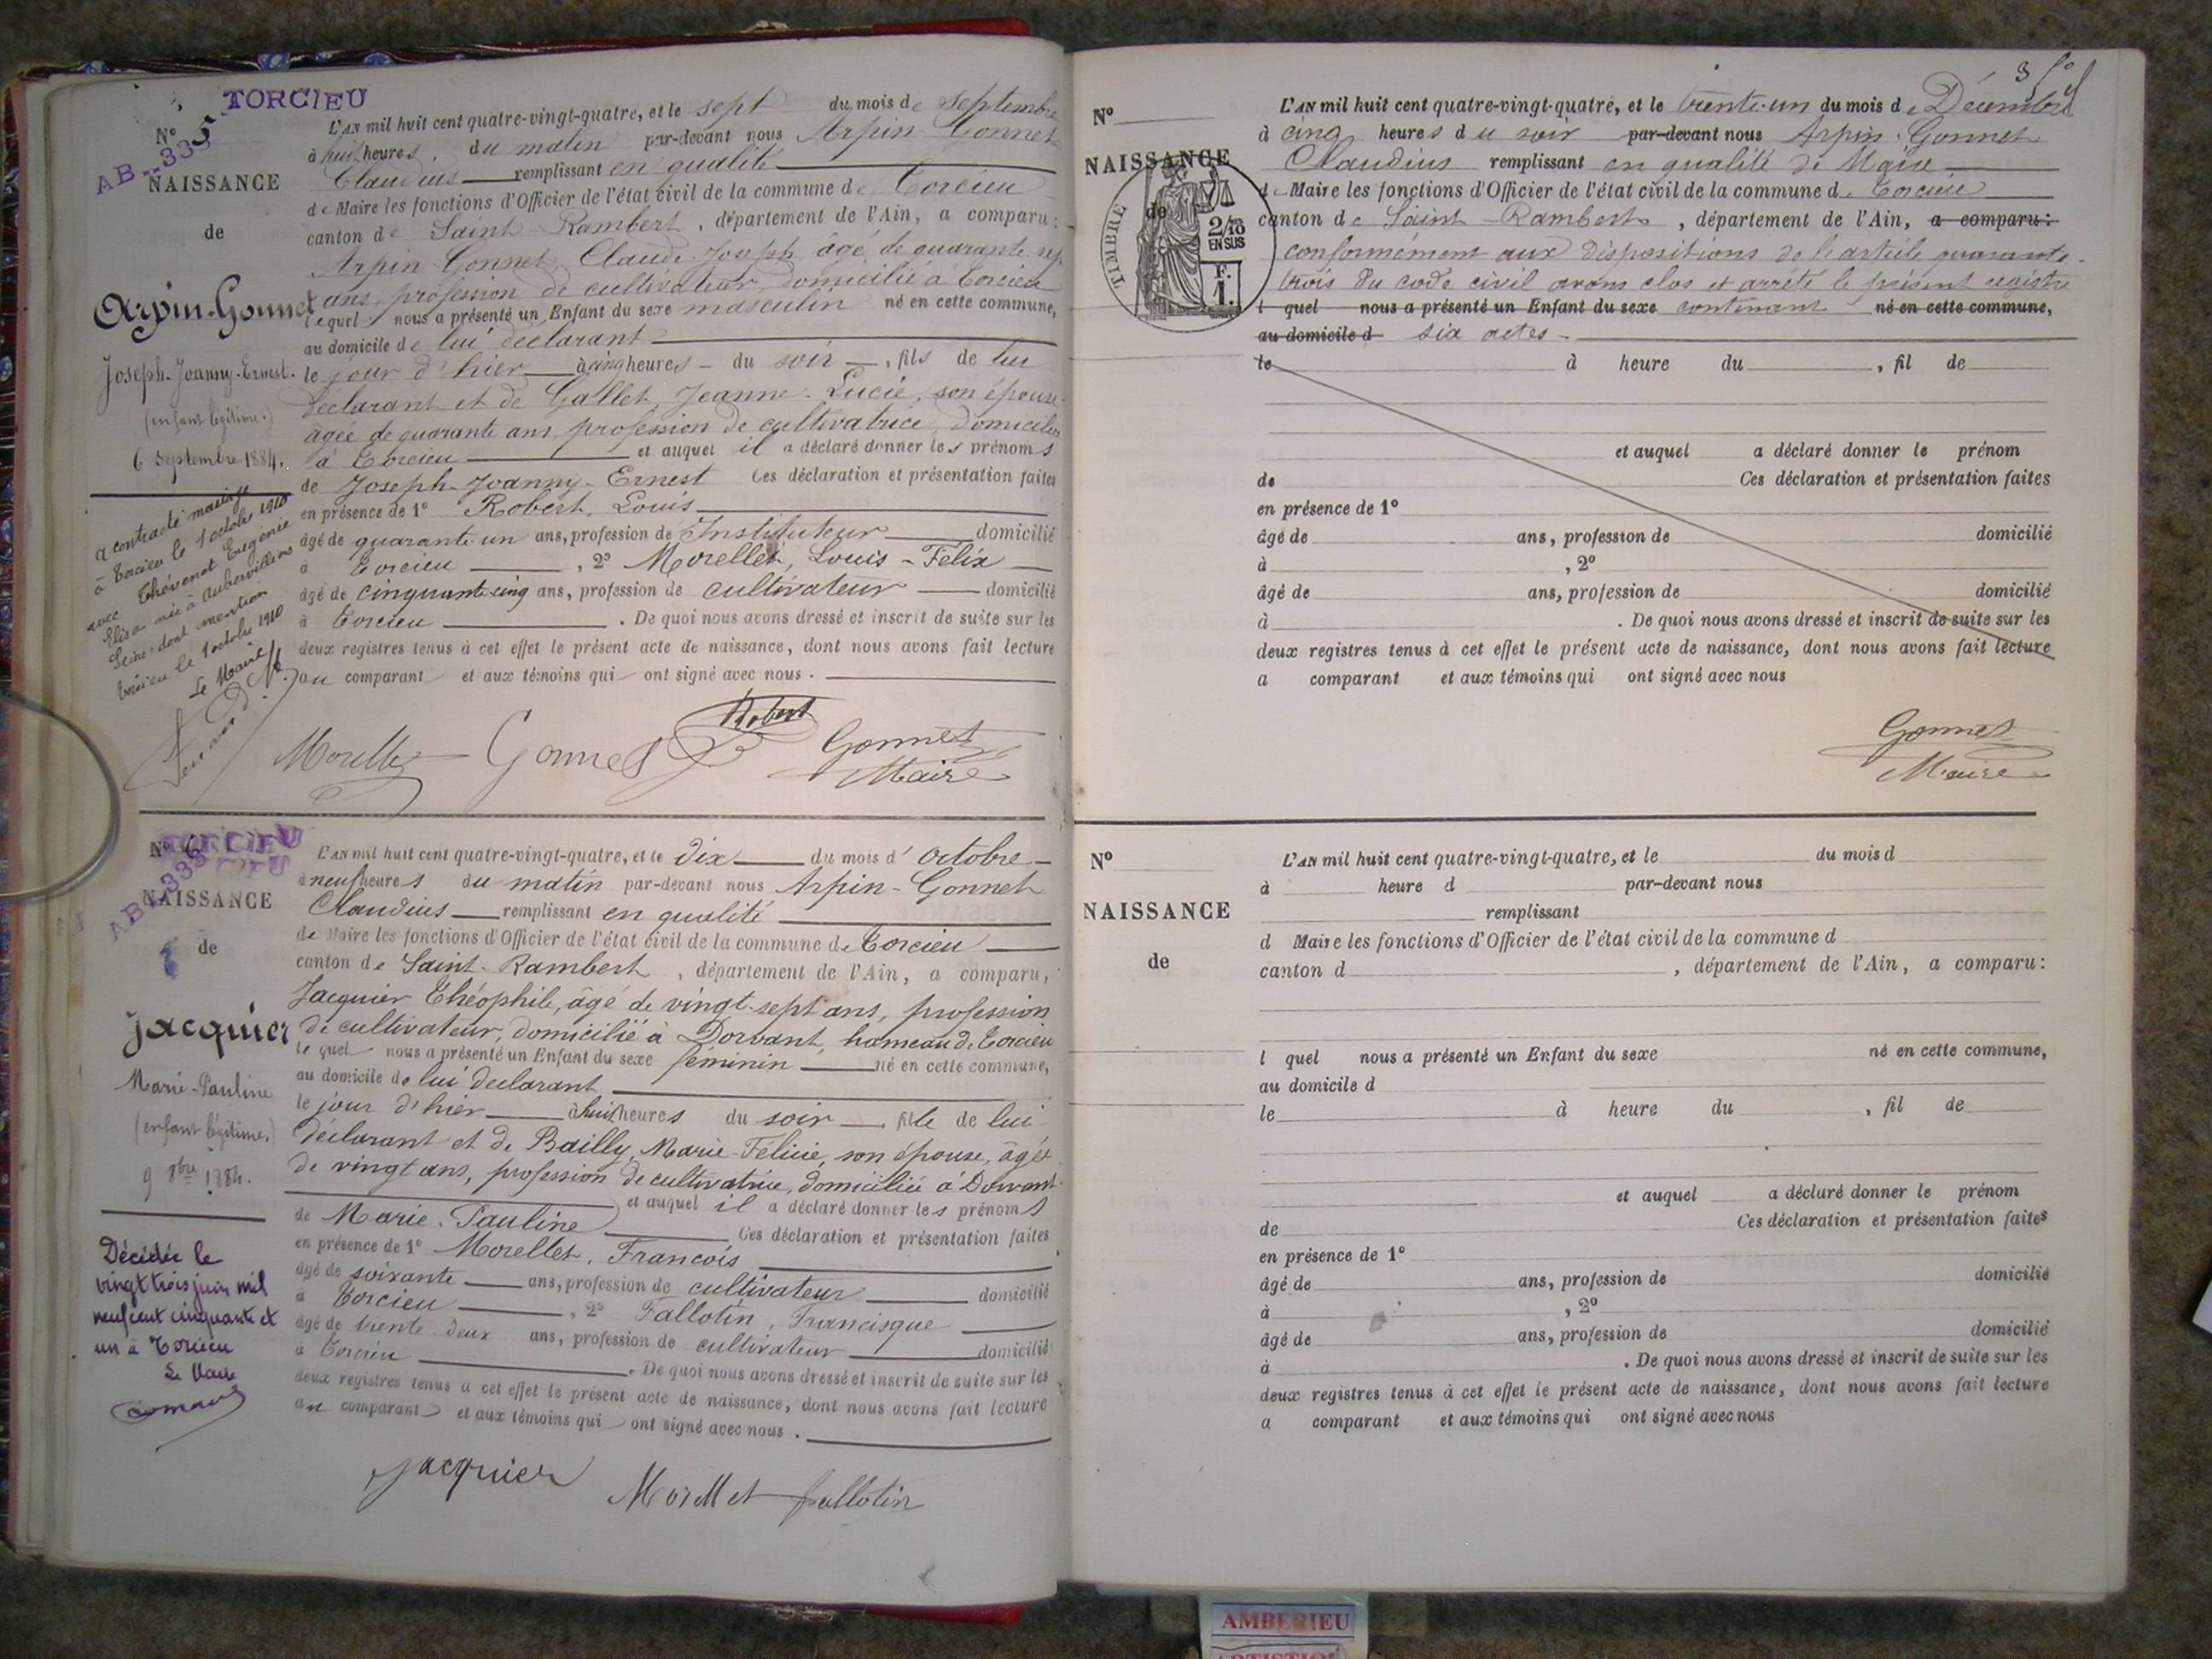 TORCIEU
AB--335
N° 5
NAISSANCE
de
Arpin-Gonnet
Joseph-Joanny-Ernest.
(enfant légitime.)
6 Septembre 1884.
a contracté mariage
à Torcieu le 1 octobre 1910
avec Thévenot Eugénie
Elisa née à Aubervilliers
Seine: dont mention
Torcieu le 1 octobre 1910
Le Maire
L'AN mil huit cent quatre-vingt-quatre, et le sept du mois de Septembre
à huit heures, du matin par-devant nous Arpin-Gonnet
Claudius remplissant en qualité
de Maire les fonctions d'Officier de l'état civil de la commune de Torcieu
canton de Saint-Rambert, département de l'Ain, a comparu:
Arpin-Gonnet, Claude-Joseph, âgé de quarante-sept
ans, profession de cultivateur, domicilié à Torcieu
lequel nous a présenté un Enfant du sexe masculin né en cette commune,
au domicile de lui déclarant
le jour d'hier à cinq heures du soir, fils de lui
déclarant et de Gallet, Jeanne-Lucie, son épouse
âgée de quarante ans, profession de cultivatrice, domiciliée
à Torcieu et auquel il a déclaré donner les prénoms
de Joseph-Joanny-Ernest Ces déclaration et présentation faites
en présence de 1° Robert, Louis
âgé de quarante-un ans, profession de Instituteur domicilié
à Torcieu, 2° Morellet, Louis-Félix
âgé de cinquante-cinq ans, profession de cultivateur domicilié
à Torcieu. De quoi nous avons dressé et inscrit de suite sur les
deux registres tenus à cet effet le présent acte de naissance, dont nous avons fait lecture
au comparant et aux témoins qui ont signé avec nous.
Morellet Gonnet Robert Gonnet
Maire
TORCIEU
AB--336
N° 6
NAISSANCE
de
Jacquier
Marie-Pauline
(enfant légitime.)
9 8bre 1884.
Décédée le
vingt trois juin mil
neuf cent cinquante et
un à Torcieu
Le Maire
L'AN mil huit cent quatre-vingt-quatre, et le dix du mois d'octobre
à neuf heures du matin par-devant nous Arpin-Gonnet
Claudius remplissant en qualité
de Maire les fonctions d'Officier de l'état civil de la commune de Torcieu
canton de Saint-Rambert, département de l'Ain, a comparu,
Jacquier Théophile, âgé de vingt-sept ans, profession
de cultivateur, domicilié à Dorvant, hameau de Torcieu
lequel nous a présenté un Enfant du sexe féminin né en cette commune,
au domicile de lui déclarant
le jour d'hier à huit heures du soir, fille de lui
déclarant et de Bailly, Marie-Félicie, son épouse, âgée
de vingt ans, profession de cultivatrice, domiciliée à Dorvant
et auquel il a déclaré donner les prénoms
de Marie-Pauline Ces déclaration et présentation faites
en présence de 1° Morellet, François
âgé de soixante ans, profession de cultivateur domicilié
à Torcieu, 2° Fallotin, Francisque
âgé de trente-deux ans, profession de cultivateur domicilié
à Torcieu. De quoi nous avons dressé et inscrit de suite sur les
deux registres tenus à cet effet le présent acte de naissance, dont nous avons fait lecture
au comparant et aux témoins qui ont signé avec nous.
Jacquier Morellet fallotin
N°
NAISSANCE
de
TIMBRE
2/10
EN SUS
F.
1.
L'AN mil huit cent quatre-vingt-quatre, et le trente-un du mois de Décembre
à cinq heures du soir par-devant nous Arpin-Gonnet
Claudius remplissant en qualité de Maire
de Maire les fonctions d'Officier de l'état civil de la commune de Torcieu
canton de Saint-Rambert, département de l'Ain, a comparu:
conformément aux dispositions de l'article quarante-
trois du code civil avons clos et arrêté le présent registre
l quel nous a présenté un Enfant du sexe contenant né en cette commune,
au domicile d six actes
le à heure du, fil de
et auquel a déclaré donner le prénom
de Ces déclaration et présentation faites
en présence de 1°
âgé de ans, profession de domicilié
à, 2°
âgé de ans, profession de domicilié
à. De quoi nous avons dressé et inscrit de suite sur les
deux registres tenus à cet effet le présent acte de naissance, dont nous avons fait lecture
a comparant et aux témoins qui ont signé avec nous
Gonnet
Maire
N°
NAISSANCE
de
L'AN mil huit cent quatre-vingt-quatre, et le du mois d
à heure d par-devant nous
remplissant
d Maire les fonctions d'Officier de l'état civil de la commune d
canton d, département de l'Ain, a comparu:
l quel nous a présenté un Enfant du sexe né en cette commune,
au domicile d
le à heure du, fil de
et auquel a déclaré donner le prénom
de Ces déclaration et présentation faites
en présence de 1°
âgé de ans, profession de domicilié
à, 2°
âgé de ans, profession de domicilié
à. De quoi nous avons dressé et inscrit de suite sur les
deux registres tenus à cet effet le présent acte de naissance, dont nous avons fait lecture
a comparant et aux témoins qui ont signé avec nous
AMBERIEU